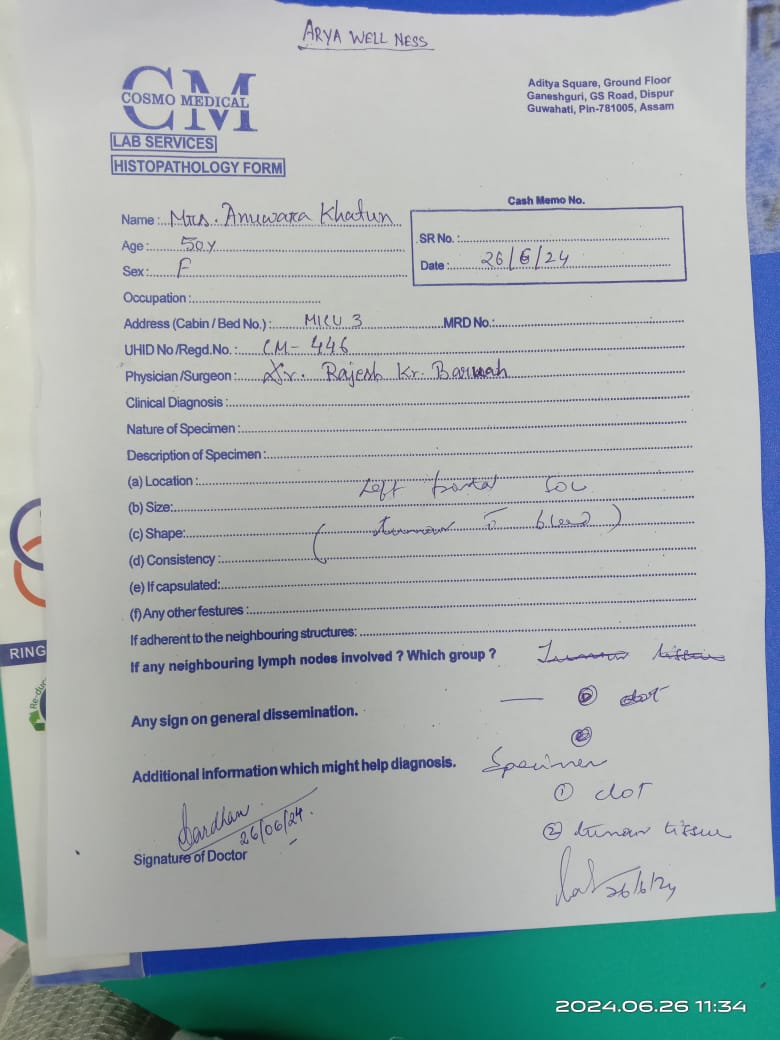 ARYA WELL NESS
CM
COSMO MEDICAL
LAB SERVICES
HISTOPATHOLOGY FORM
Aditya Square, Ground Floor
Ganeshguri, GS Road, Dispur
Guwahati, Pin-781005, Assam
Cash Memo No.
Name : Mrs. Anuwara Khatun
SR No. :
Age : 50y
Date : 26/6/24
Sex : F
Occupation :
Address (Cabin / Bed No.) : MICU 3 MRD No.:
UHID No /Regd.No. : CM-446
Physician /Surgeon : Dr. Rajesh Kr. Barwah
Clinical Diagnosis :
Nature of Specimen :
Description of Specimen :
(a) Location :
Left frontal SOL
(b) Size:
(c) Shape: (tumour c̄ bleed)
(d) Consistency :
(e) If capsulated:
(f) Any other festures :
If adherent to the neighbouring structures:
If any neighbouring lymph nodes involved ? Which group ? Tumour tissue
Any sign on general dissemination. — clot
Additional information which might help diagnosis. Specimen
① clot
② tumor tissue
26/06/24
Signature of Doctor
26/6/24
RING
Re-duc
2024.06.26 11:34